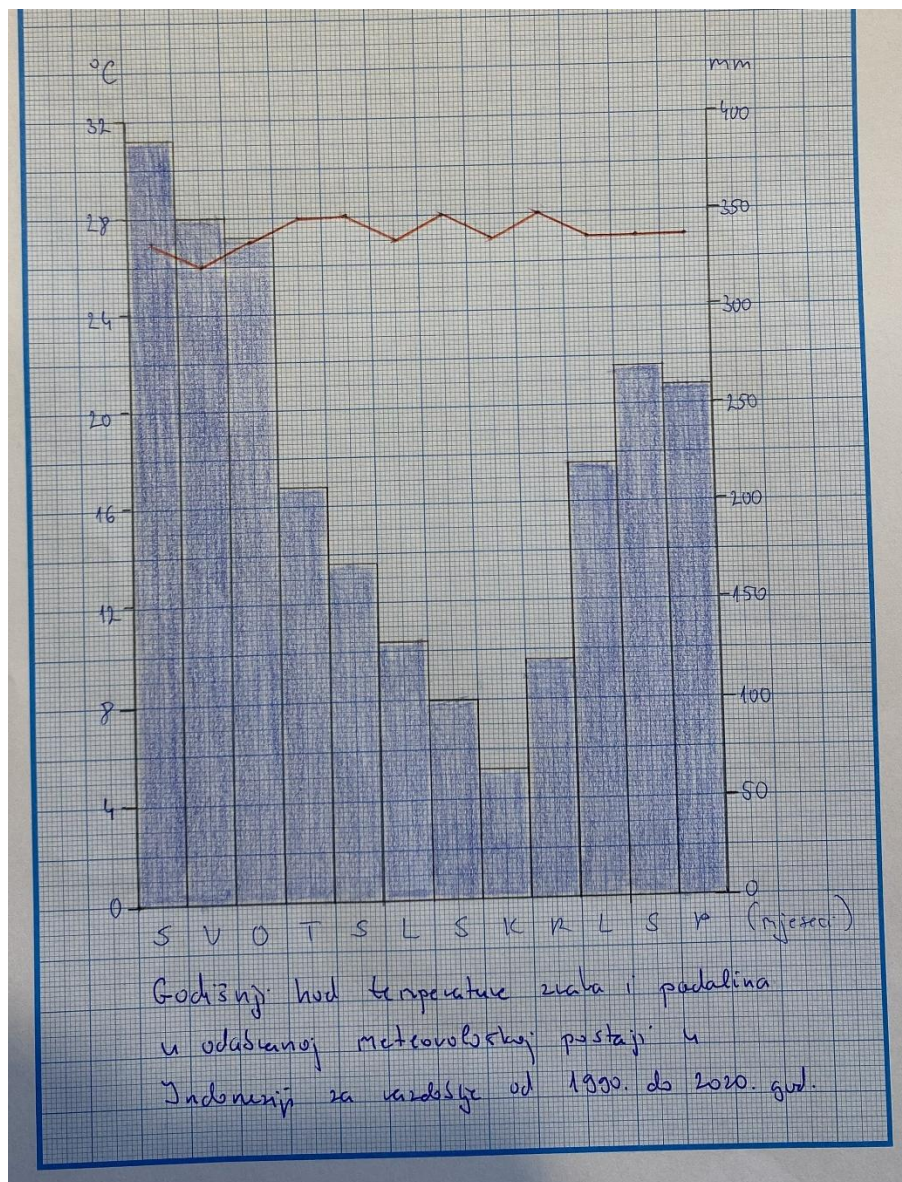 °C mm
32 400
28 350
24 300
20 250
16 200
12 150
8 100
4 50
0 0
S V O T S L S K R L S P (mjeseci)
Godišnji hod temperature zraka i padalina
u odabranoj meteorološkoj postaji u
Indoneziji za razdoblje od 1990. do 2020. god.